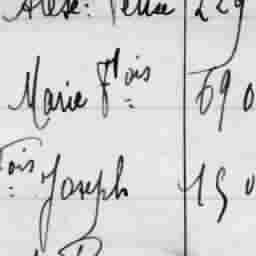 Alexe: 229
Marie Fois 690
Fois Joseph 150